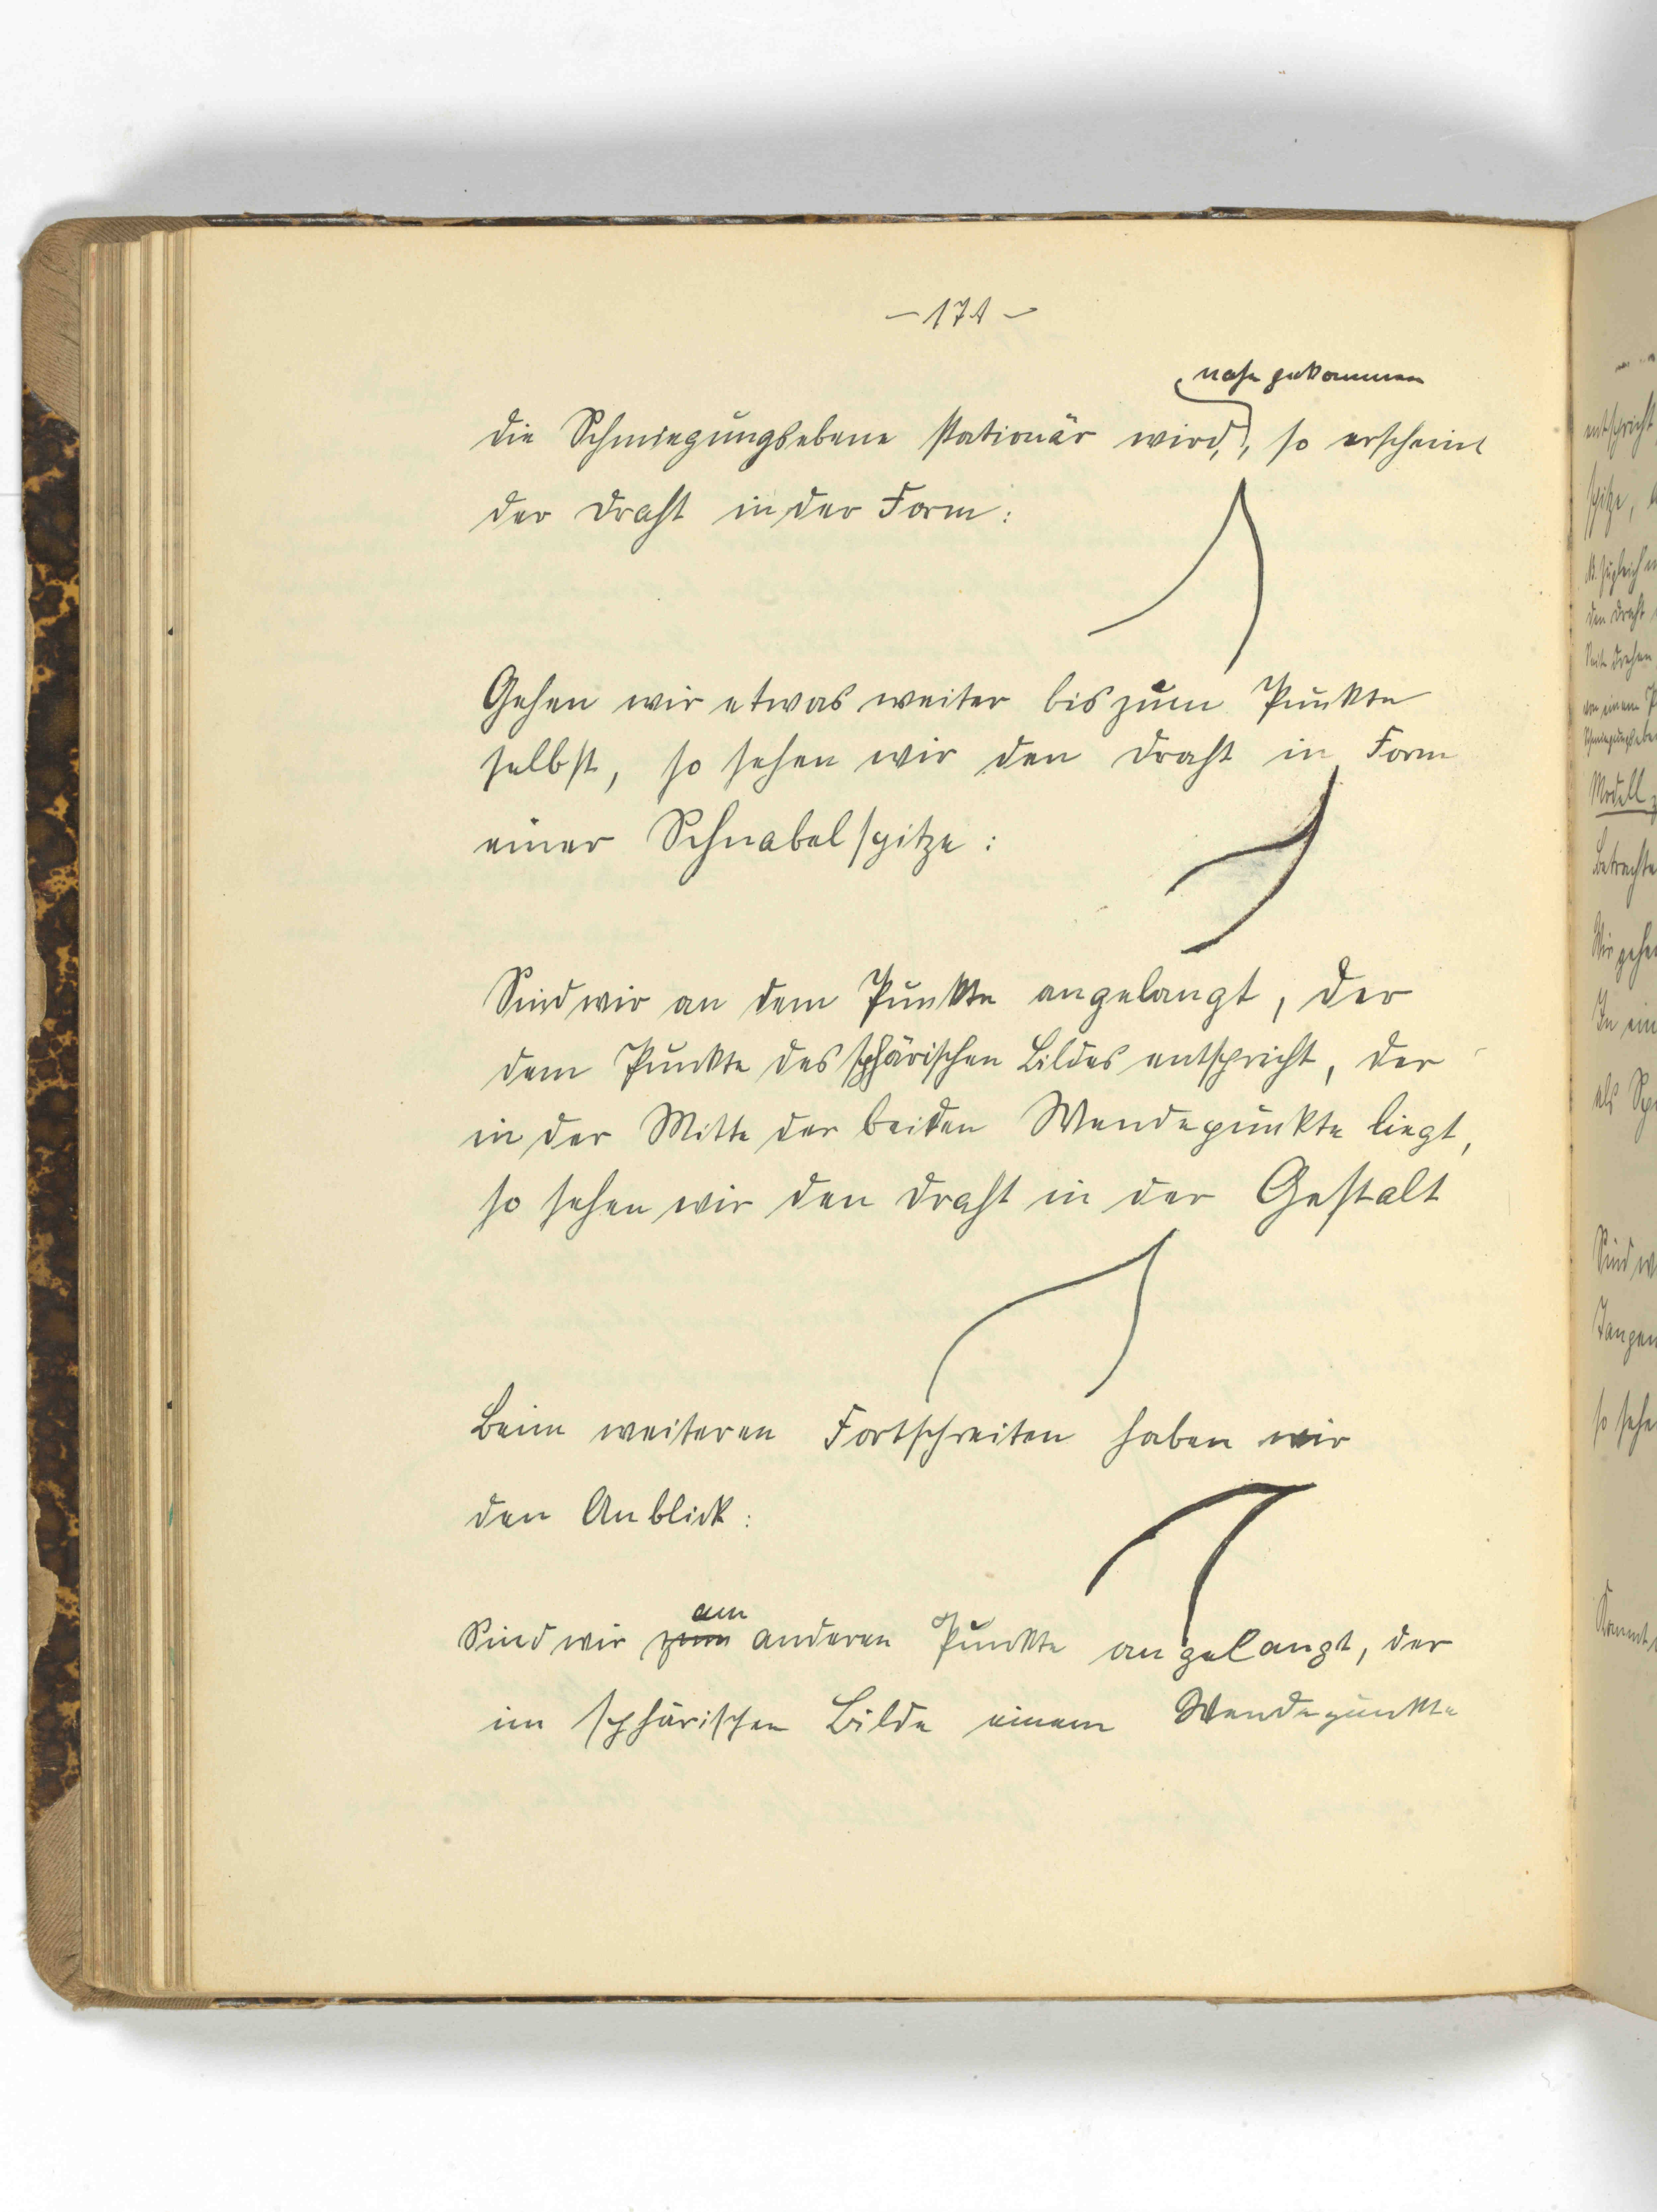 - 171 -
nahe gekommen
die Schmiegungsebene stationär wird, , so erscheint
der Draht in der Form:
Gehen wir etwas weiter bis zum Punkte
selbst, so sehen wir den Draht in Form
einer Schnabelspitze:
Sind wir an dem Punkte angelangt, der
dem Punkte des sphärischen Bildes entspricht, der
in der Mitte der beiden Wendepunkte liegt,
so sehen wir den Draht in der Gestalt
Beim weiteren Fortschreiten haben wir
den Anblick:
am
Sind wir zum anderen Punkte angelangt, der
im sphärischen Bilde einem Wendepunkte
entspricht
spitze,
zugleich
den Draht
Seite drehen
von einem
Schmiegungsebe
Modell
Betrachte
Wir gehe
In ein
als
Sind w
Tangen
so sehe
Kommt